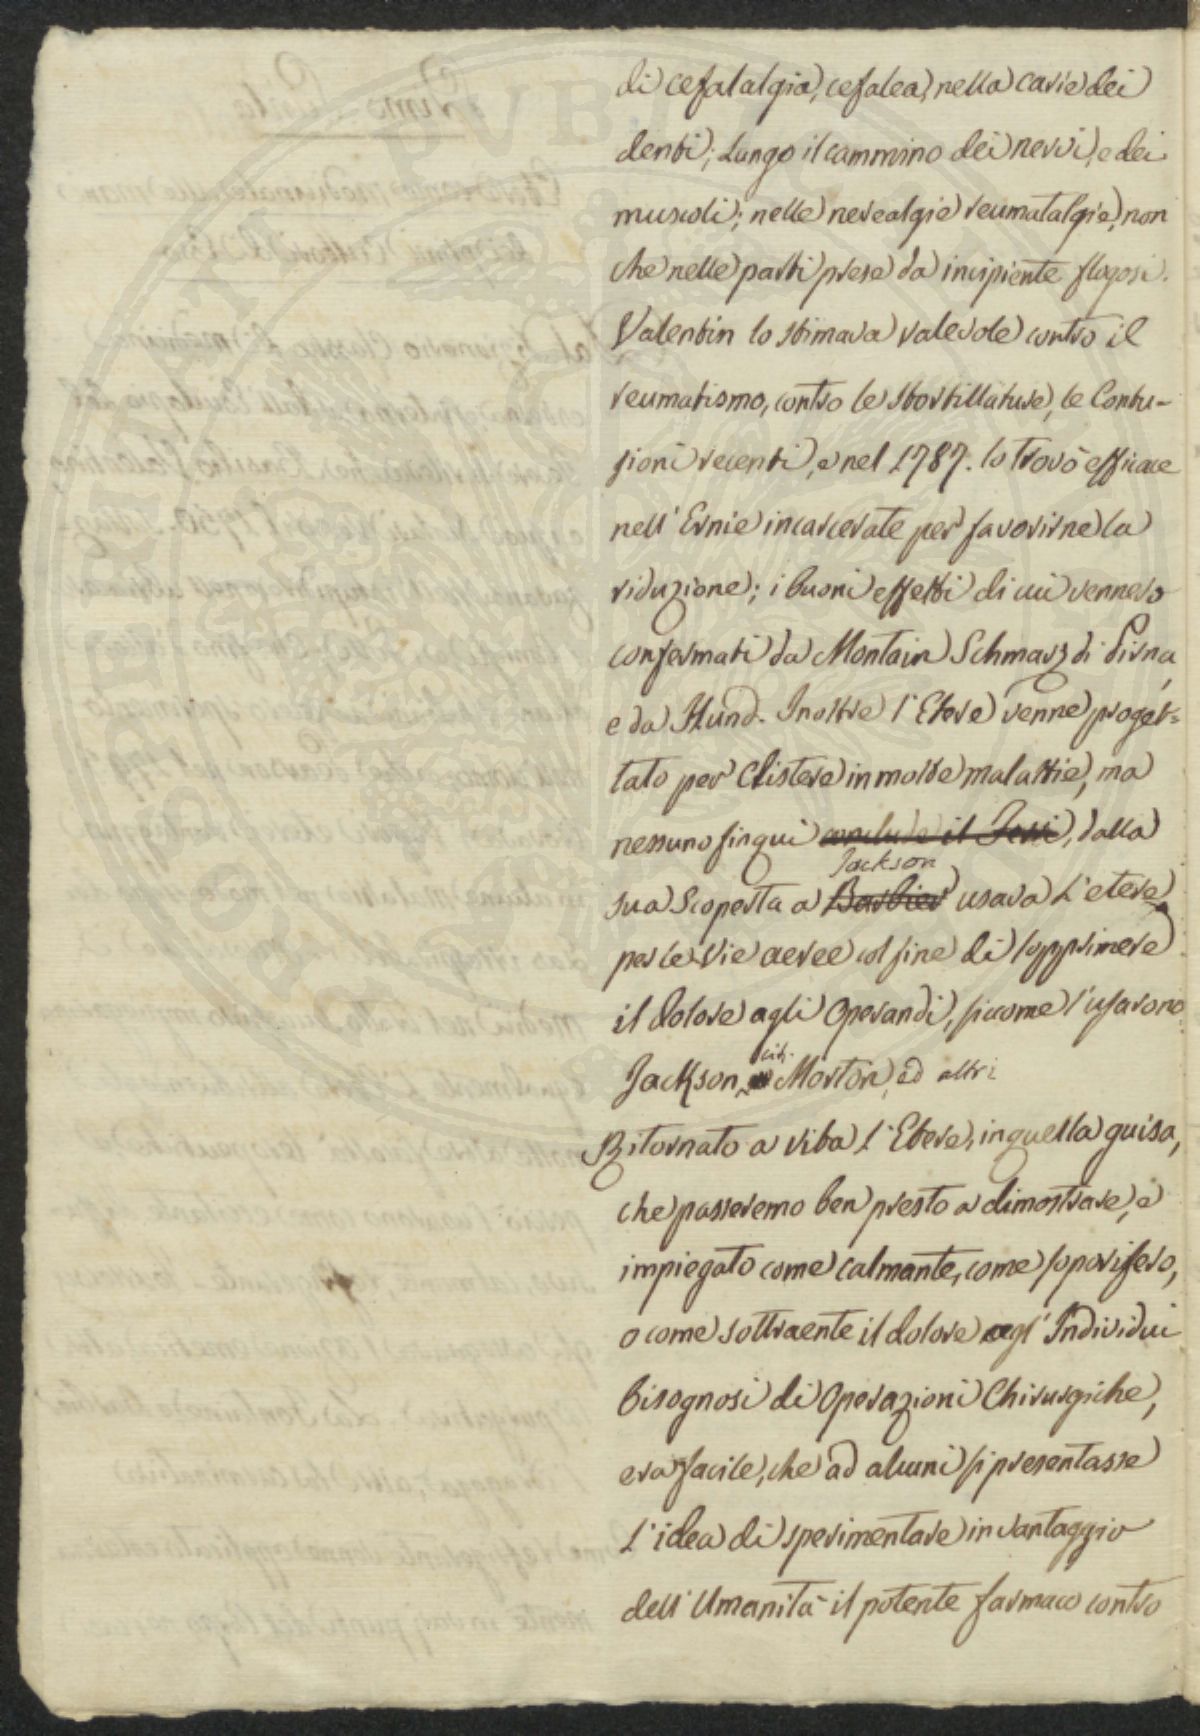 di cefalalgia, cefalea, nella carie dei
denti; Lungo il cammino dei nervi, e dei
muscoli; nelle nevralgie reumatalgie, non
che nelle parti prese da incipiente flogosi.
Valentin lo stimava valevole contro il
reumatismo, contro le stortillature, le Contu-
sioni recenti, e nel 1787. lo trovò efficace
nell' Ernie incarcerate per favorirne la
riduzione; i buoni effetti di cui vennero
confermati da Montain Schmarz di Pirna,
e da Hund. Inoltre l'Etere venne proget=
tato per Clistere in molte malattie, ma
nessuno finqui conclude il Jessi, dalla
Jackson
sua Scoperta a Barbier usava L'etere
per le Vie aeree col fine di sopprimere
il dolore agli Operandi, siccome l'usarono
Jackson cit. Morton, ed altri
Ritornato a vita l'Etere, in quella guisa,
che passeremo ben presto a dimostrare, e
impiegato come calmante, come soporifero,
o come sottraente il dolore agl' Individui
bisognosi di Operazioni Chirurgiche,
era facile, che ad alcuni si presentasse
L'idea di sperimentare in vantaggio
dell' Umanità il potente farmaco contro